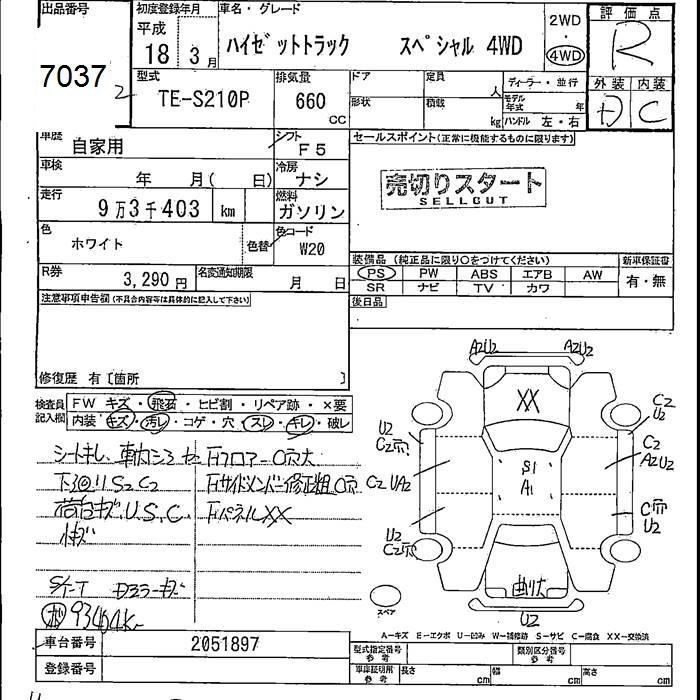 出品番号
7037
初度登録年月
平成
18 3月
車名・グレード
ハイゼットトラック スペシャル 4WD
2WD
・
4WD
評価点
R
外装 内装
D C
型式
TE-S210P
排気量
660
CC
ドア
形状
定員
人
積載
kg
ディーラー・並行
モデル
年式
年
ハンドル 左・右
車歴
自家用
シフト
F5
車検
年 月( 日)
冷房
ナシ
走行
9万3千403 km
燃料
ガソリン
色
ホワイト
色替
色コード
W20
R券
3,290円
名変通知期限
月 日
セールスポイント(正常に機能するものに限ります)
売切りスタート
SELLOUT
装備品 (純正品に限り○をつけてください)
新車保証書
PS PW ABS エアB AW
SR ナビ TV カワ
有・無
後日品
注意事項申告欄(不具合内容等は具体的に記入して下さい)
修復歴 有〔箇所 〕
検査員
記入欄
FW キズ・飛石・ヒビ割・リペア跡・×要
内装・キズ・汚レ・コゲ・穴・スレ・キレ・破レ
シートキレ、車内シミ
S2 C2
荷台キズ、U.S.C
93404K
フロアーC穴大
サイドメンバー修正粗C穴
パネルXX
A2U2 A2U2
XX
U2
C2穴
C2
U2
C2 UA2
S1
A1
C2
A2U2
U2
C2穴
C穴
U2
曲り大
U2
スペア
A-キズ E-エクボ U-凹み W-補修跡 S-サビ C-腐食 XX-交換済
車台番号
2051897
登録番号
型式指定番号
参考
類別区分番号
参考
車庫証明用
参考
長さ cm 幅 cm 高さ cm